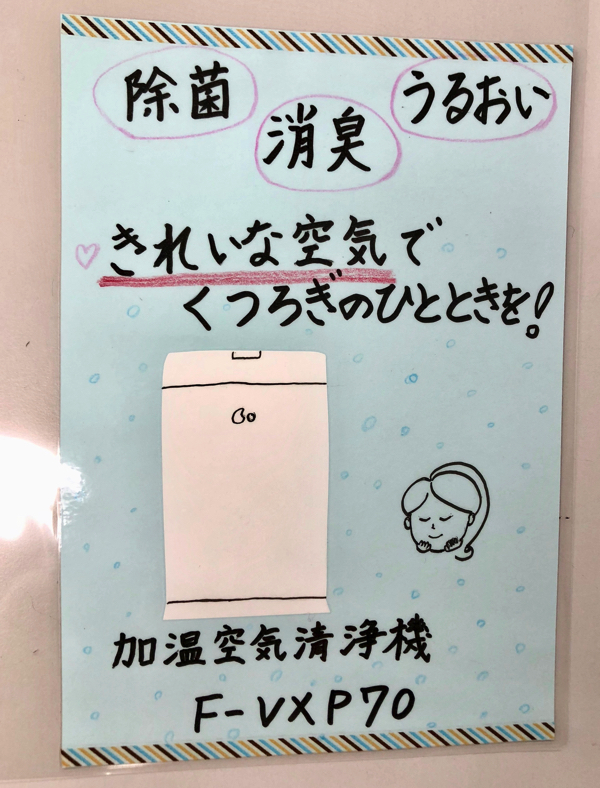 除菌
消臭
うるおい
きれいな空気で
くつろぎのひとときを!
加温空気清浄機
F-VXP70